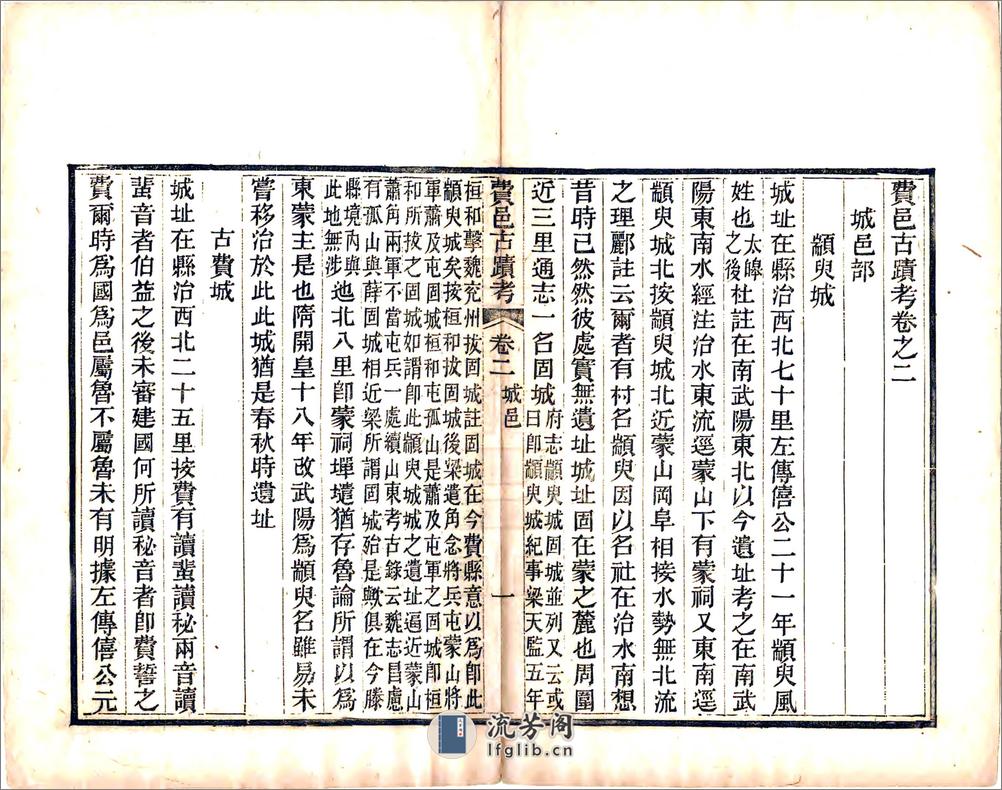 費邑古蹟考卷之二
城邑部
顓臾城
城址在縣治西北七十里左傳僖公二十一年顓臾風
姓也太皞之後杜註在南武陽東北以今遺址考之在南武
陽東南水經注治水東流逕蒙山下有蒙祠又東南逕
顓臾城北按顓臾城北近蒙山岡阜相接水勢無北流
之理酈註云爾者有村名顓臾因以名社在治水南想
昔時已然然彼處實無遺址城址固在蒙之麓也周圍
近三里通志一名固城府志顓臾城固城並列又云或
曰卽顓臾城紀事梁天監五年
費邑古蹟考
卷二
城邑
一
桓和擊魏兖州拔固城註固城在今費縣意以爲卽此
顓臾城矣按桓和拔固城後梁遣角念將兵屯蒙山將
軍蕭及屯固城桓和屯孤山是蕭及屯軍之固城卽桓
和所拔之固城如謂卽此顓臾城城之遺址逼近蒙山
蕭角兩軍不當屯兵一處續山東考古錄云魏志昌慮
有孤山與薛固城相近梁所謂固城殆是歟俱在今滕
縣境內與
此地無涉迤北八里卽蒙祠墠壝猶存魯論所謂以爲
東蒙主是也隋開皇十八年改武陽爲顓臾名雖易未
嘗移治於此此城猶是春秋時遺址
古費城
城址在縣治西北二十五里按費有讀蜚讀秘兩音讀
蜚音者伯益之後未審建國何所讀秘音者卽費誓之
費爾時爲國爲邑屬魯不屬魯未有明據左傳僖公元
流芳阁
lfglib.cn